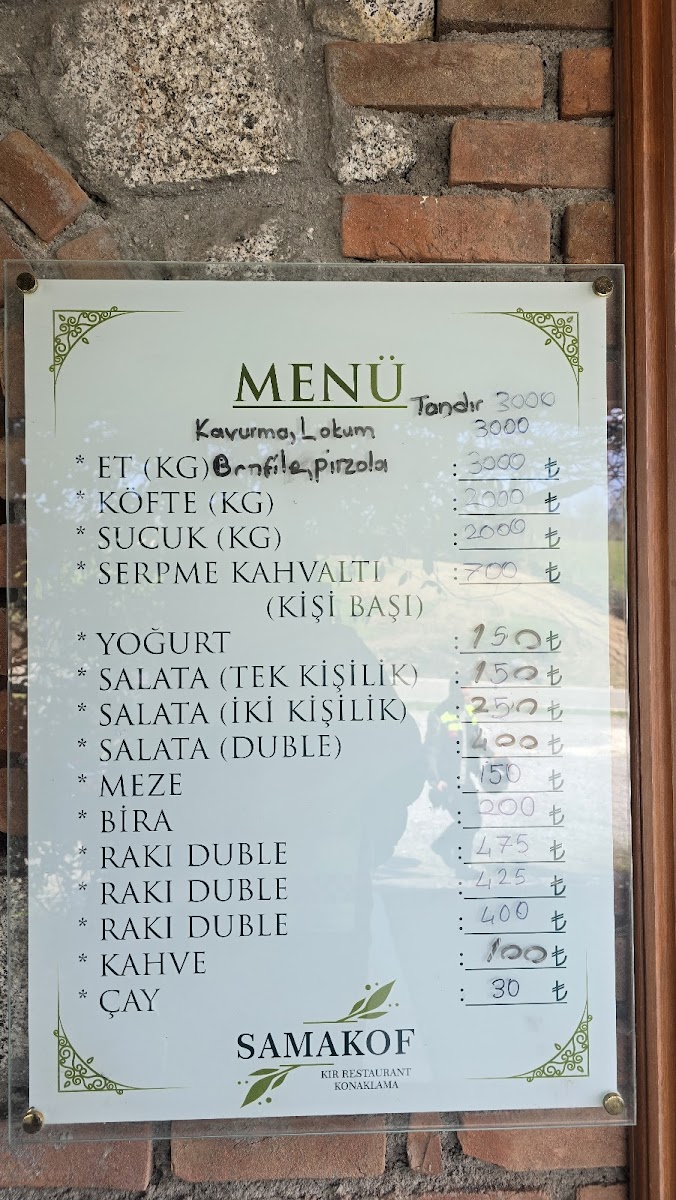 MENÜ
Tandır 3000
Kavurma, Lokum 3000
* ET (KG) Bonfile, Pirzola : 3000 ₺
* KÖFTE (KG) : 2000 ₺
* SUCUK (KG) : 2000 ₺
* SERPME KAHVALTI : 700 ₺
(KİŞİ BAŞI)
* YOĞURT : 150 ₺
* SALATA (TEK KİŞİLİK) : 150 ₺
* SALATA (İKİ KİŞİLİK) : 250 ₺
* SALATA (DUBLE) : 400 ₺
* MEZE : 150 ₺
* BİRA : 200 ₺
* RAKI DUBLE : 475 ₺
* RAKI DUBLE : 425 ₺
* RAKI DUBLE : 400 ₺
* KAHVE : 100 ₺
* ÇAY : 30 ₺
SAMAKOF
KIR RESTAURANT
KONAKLAMA